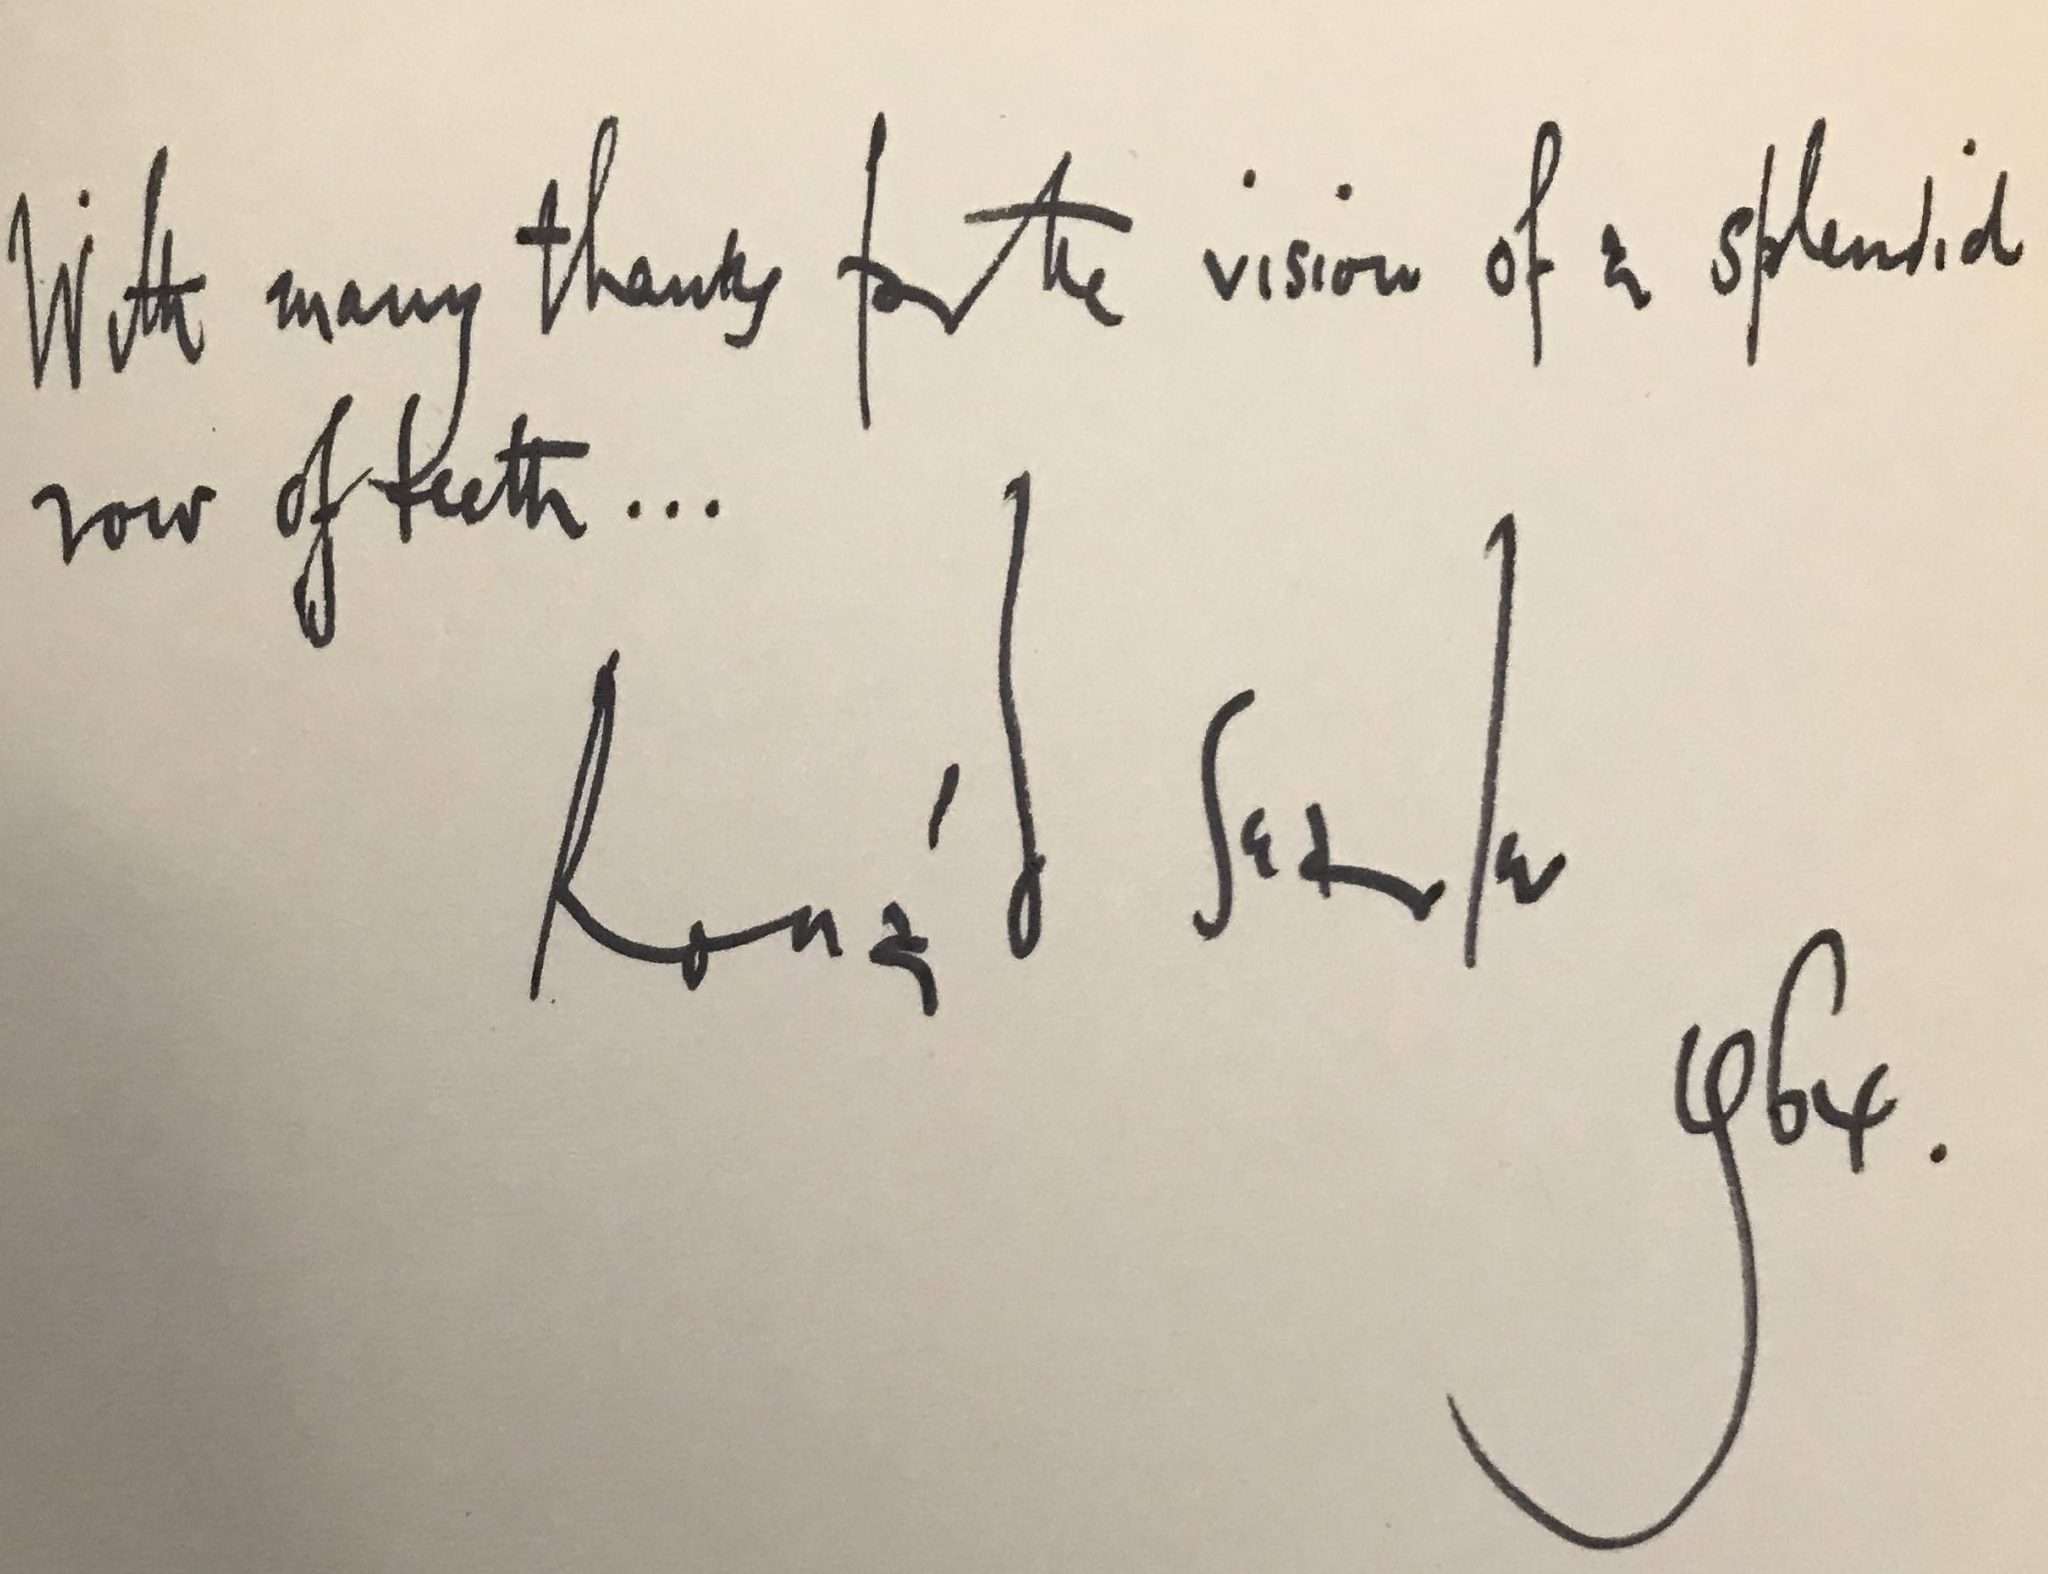 With many thanks for the vision of a splendid
row of teeth...
Ronald Searle
1964.